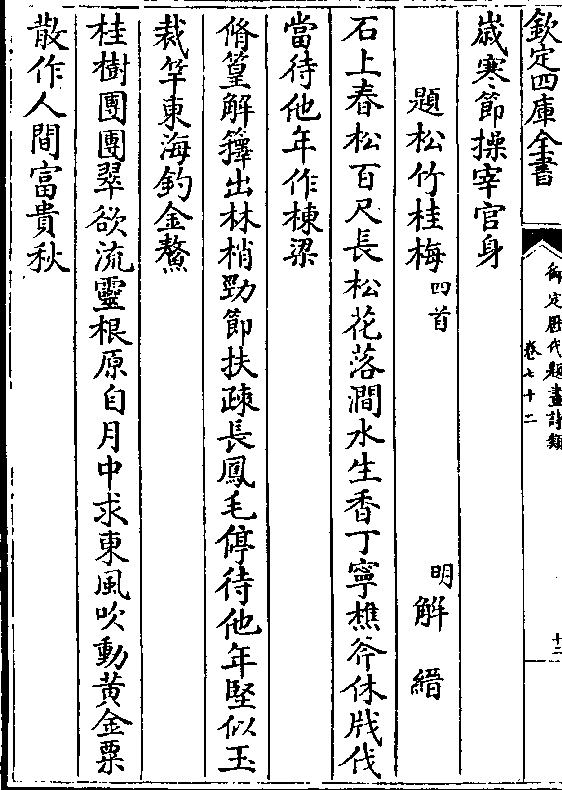 欽定四庫全書
御定歷代題畫詩類
卷七十二
十二
歲寒節操宰官身
題松竹桂梅四首
明解縉
石上春松百尺長松花落澗水生香丁寧樵斧休戕伐
當待他年作棟梁
脩篁解籜出林梢勁節扶疎長鳳毛停待他年堅似玉
裁竿東海釣金鰲
桂樹團團翠欲流靈根原自月中求東風吹動黄金粟
散作人間富貴秋